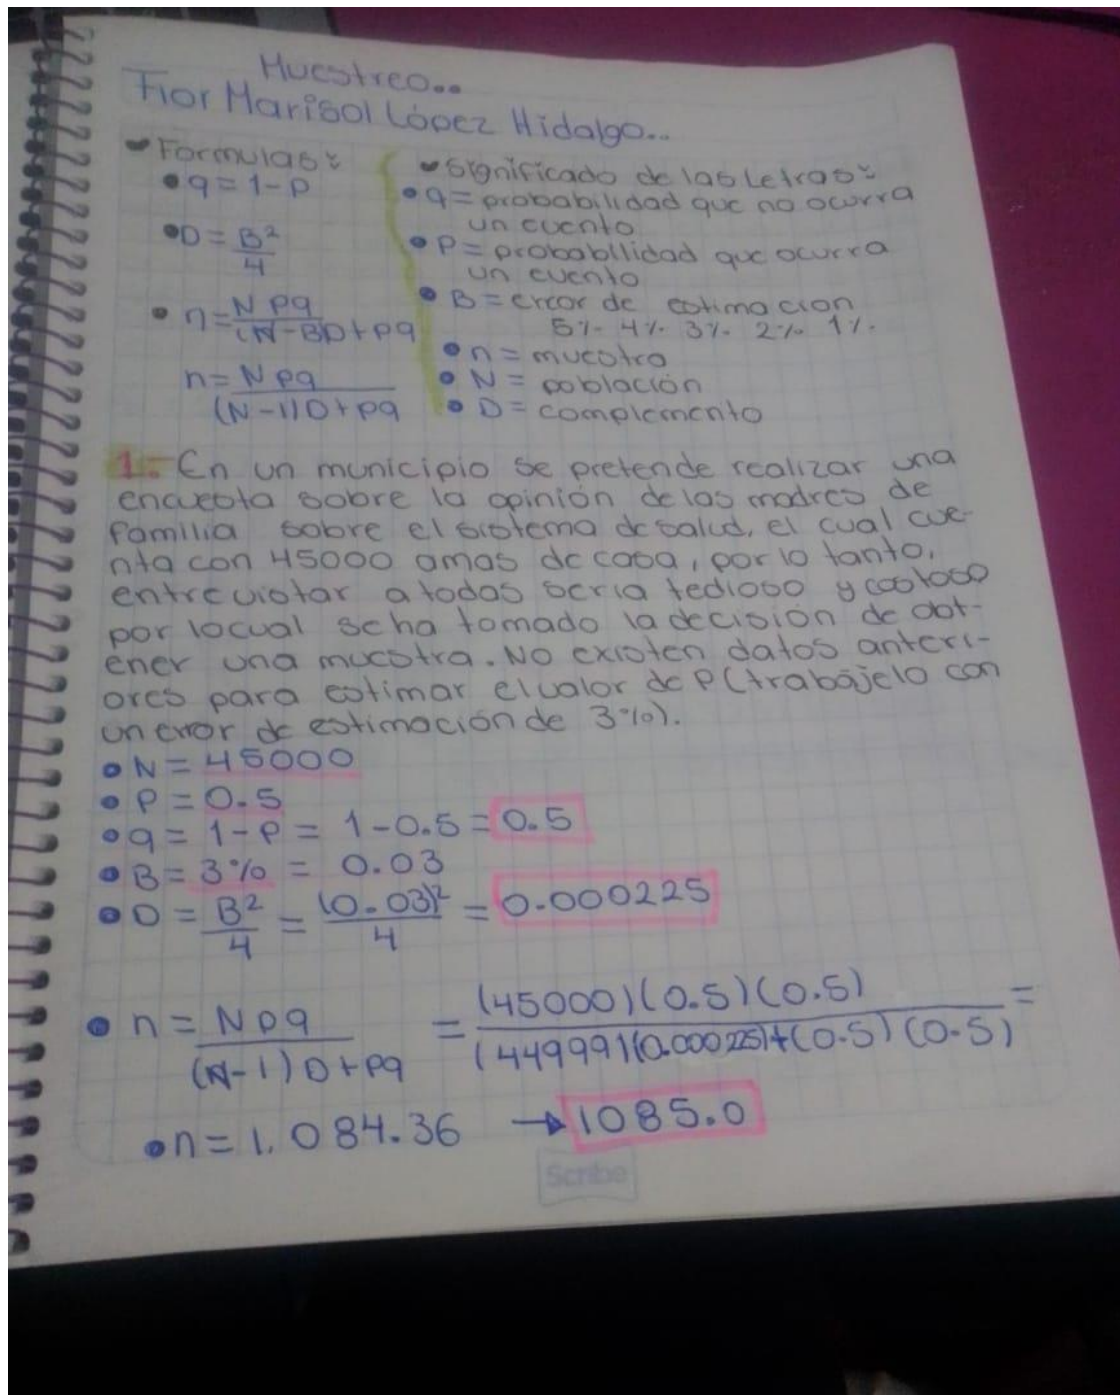 Muestreo..
Flor Marisol López Hidalgo..
Formulas:
• q = 1 - p
• D = B²/4
• n = Npq/(N-B)D+pq
n = Npq/(N-1)D+pq
Significado de las Letras:
• q = probabilidad que no ocurra
un evento
• P = probabilidad que ocurra
un evento
• B = error de estimacion
5%. 4%. 3%. 2%. 1%.
• n = muestra
• N = población
• D = complemento
1.- En un municipio se pretende realizar una
encuesta sobre la opinión de las madres de
familia sobre el sistema de salud, el cual cue-
nta con 45000 amas de casa, por lo tanto,
entrevistar a todas seria tedioso y costoso
por locual se ha tomado la decisión de obt-
ener una muestra. No existen datos anteri-
ores para estimar el valor de P (trabájelo con
un error de estimación de 3%).
• N = 45000
• P = 0.5
• q = 1 - P = 1 - 0.5 = 0.5
• B = 3% = 0.03
• D = B²/4 = (0.03)²/4 = 0.000225
• n = Npq/(N-1)D+pq = (45000)(0.5)(0.5)/(44999)(0.000225)+(0.5)(0.5) =
• n = 1,084.36 → 1085.0
Scribe